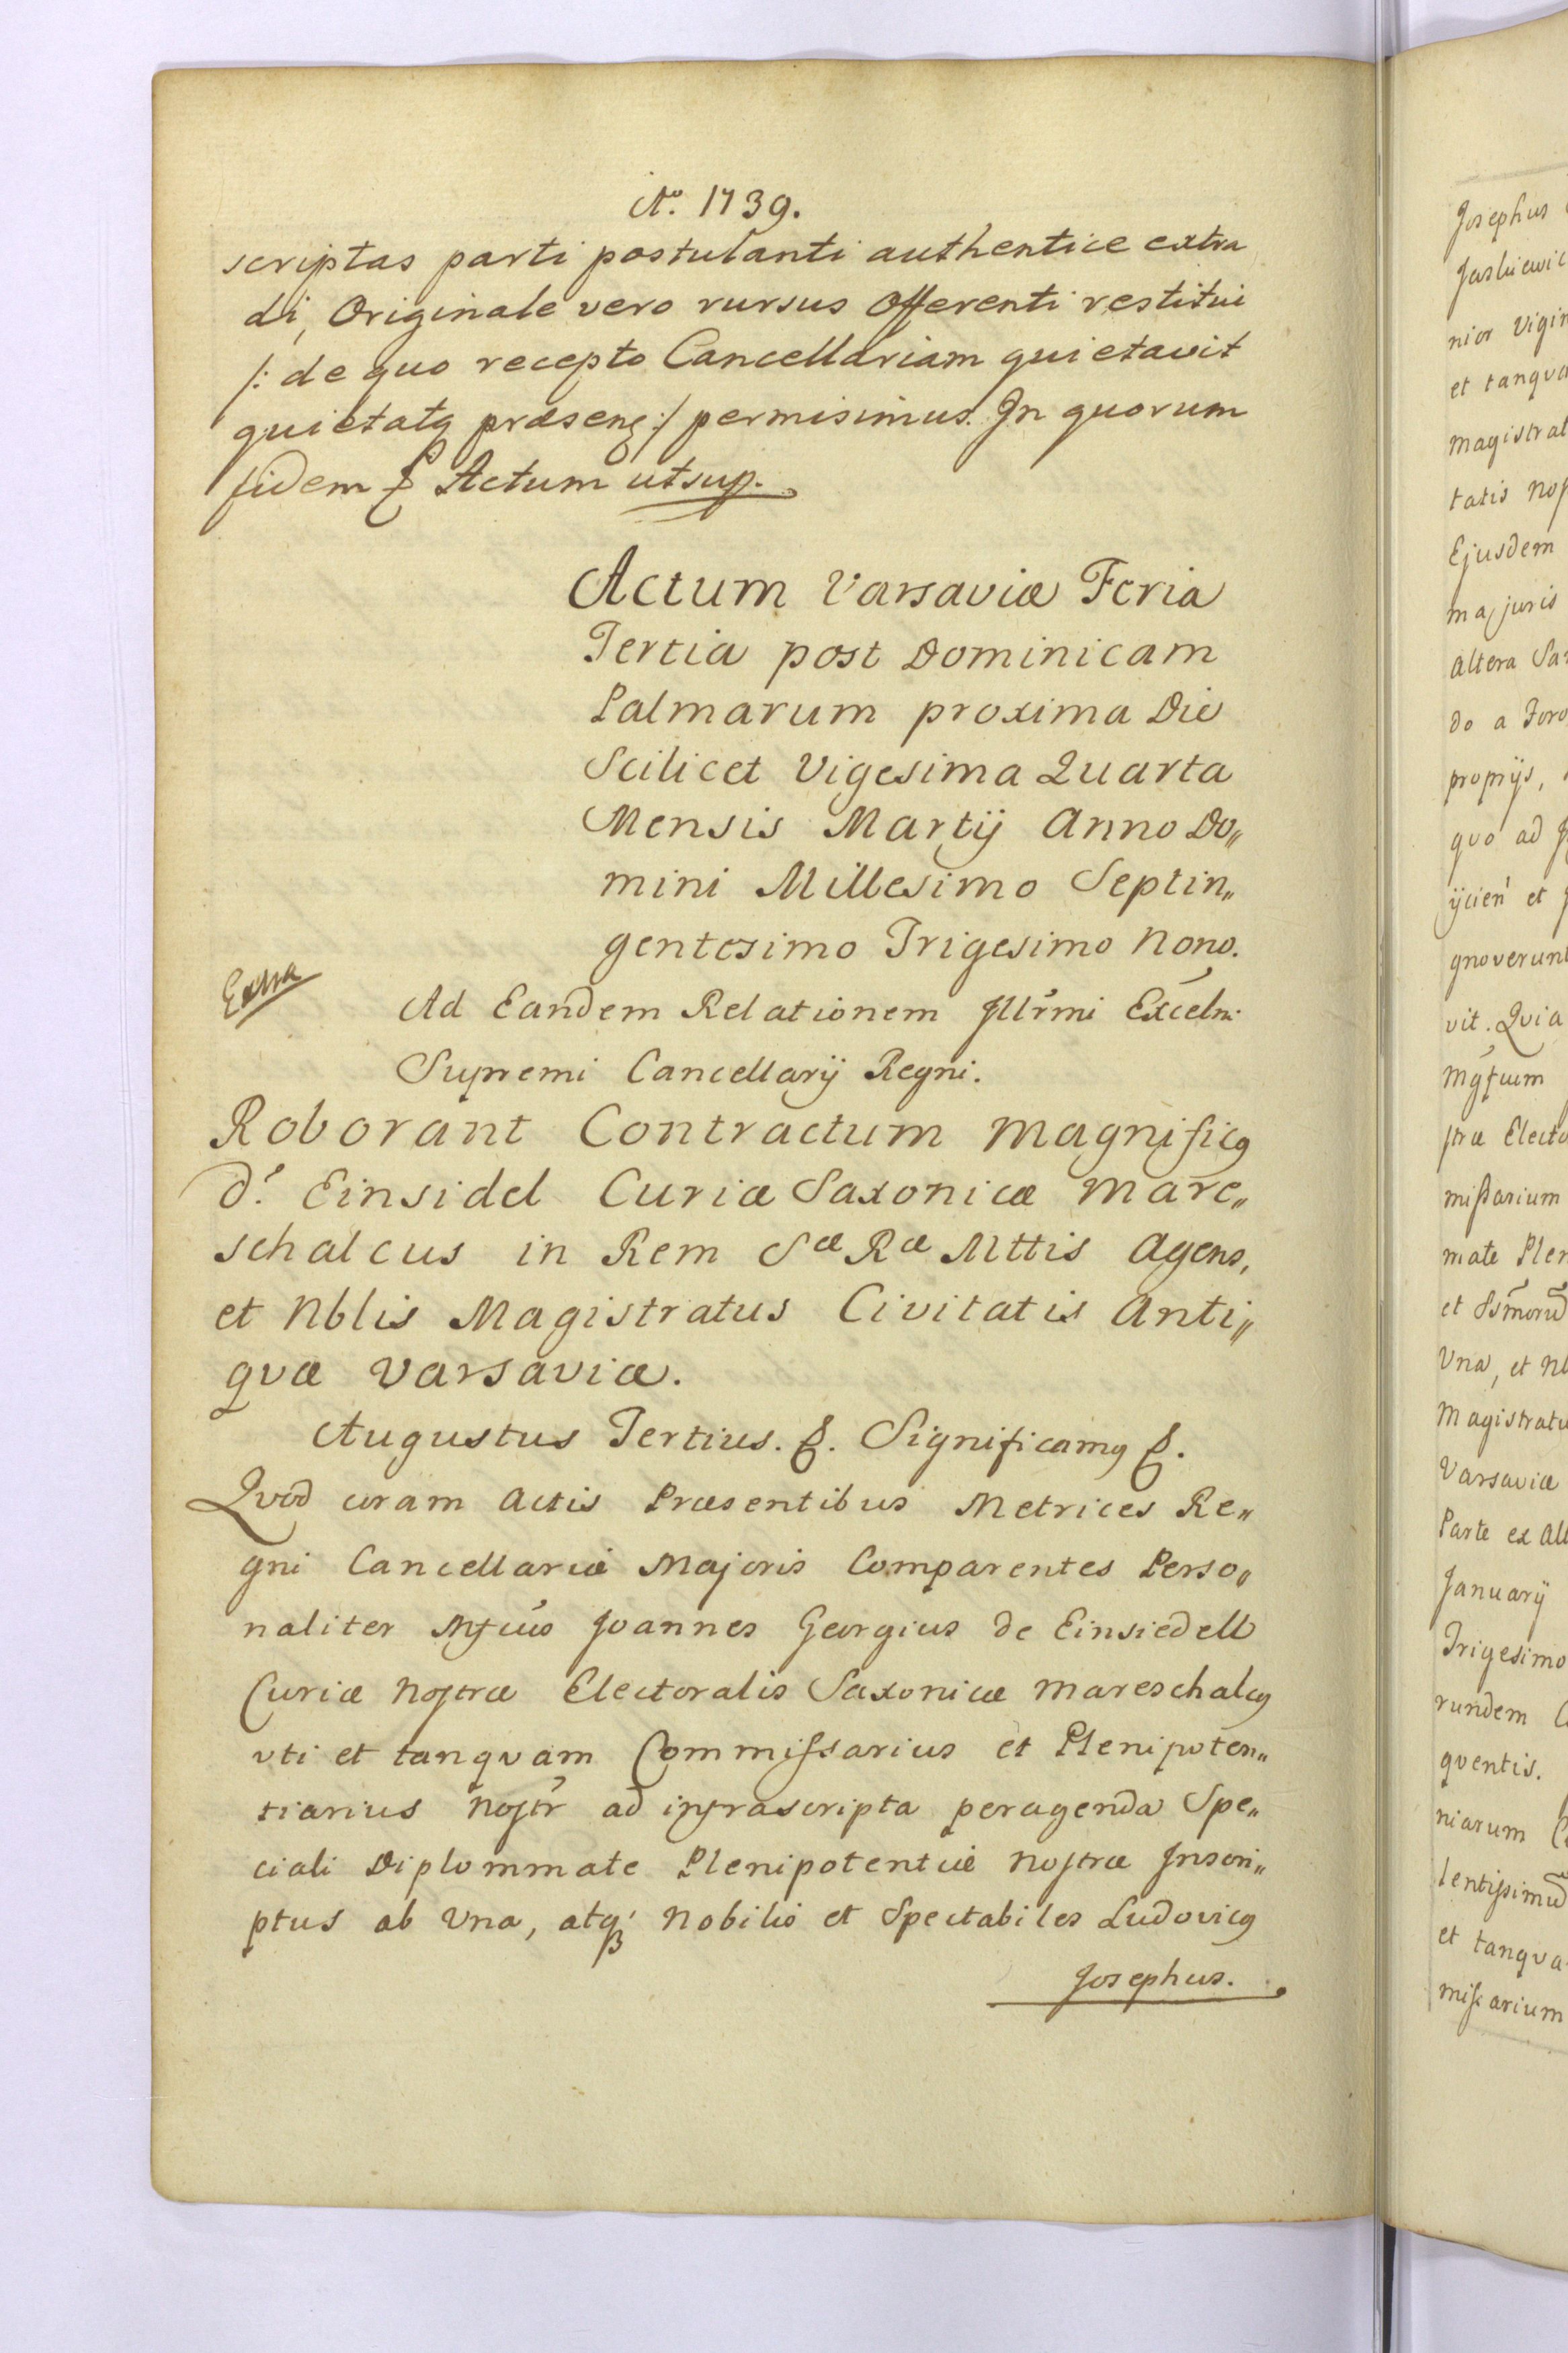 Aͦ. 1739.
scriptas parti postulanti authentice extra
di, Originale vero rursus Offerenti restitui
/: de quo recepto Cancellariam quietavit
quietatq præsenz :/ permisimus. In quorum
fidem &. Actum ut sup.
Actum Varsaviæ Feria
Tertia post Dominicam
Palmarum proxima Die
Scilicet Vigesima Quarta
Mensis Martij Anno Do„
mini Millesimo Septin„
gentesimo Trigesimo Nono.
Extra
Ad Eandem Relationem Illr̃mi Excelm̃.
Supremi Cancellarij Regni.
Roborant Contractum Magnificꝯ
d? Einsidel Curiæ Saxonicæ Mare„
schalcus in Rem Sæ Ræ Mttis Agens,
et Nblis Magistratus Civitatis Anti„
quæ Varsaviæ.
Augustus Tertius. &. Significamꝯ &.
Quod coram Actis Præsentibus Metrices Re„
gni Cancellariæ Majoris Comparentes Perso„
naliter Mfcus Joannes Georgius de Einsiedell
Curiæ Nostræ Electoralis Saxonicæ Mareschalcꝯ
vti et tanqvam Commissarius et Plenipoten„
tiarius Nostr̃ ad infrascripta peragenda Spe„
ciali Diplommate Plenipotentiæ Nostræ Inscri„
ptus ab Una, atqꝫ Nobilis et Spectabiles Ludovicꝯ
Josephus.
Josephus
nior Vigin
et tanqva
Magistrat
tatis Nos
Ejusdem
ma juris
Altera
do a Foro
proprijs,
quo ad
ijcien̄ et
gnoverunt
vit. Quia
Mgfcum
stræ Electo
missarium
mate Plen
Una, et Nb
Magistratu
Varsaviæ
Parte ex Alt
Januarij
Trigesimo
rundem
qventis.
niarum
lentissimū
et tanqva
missarium